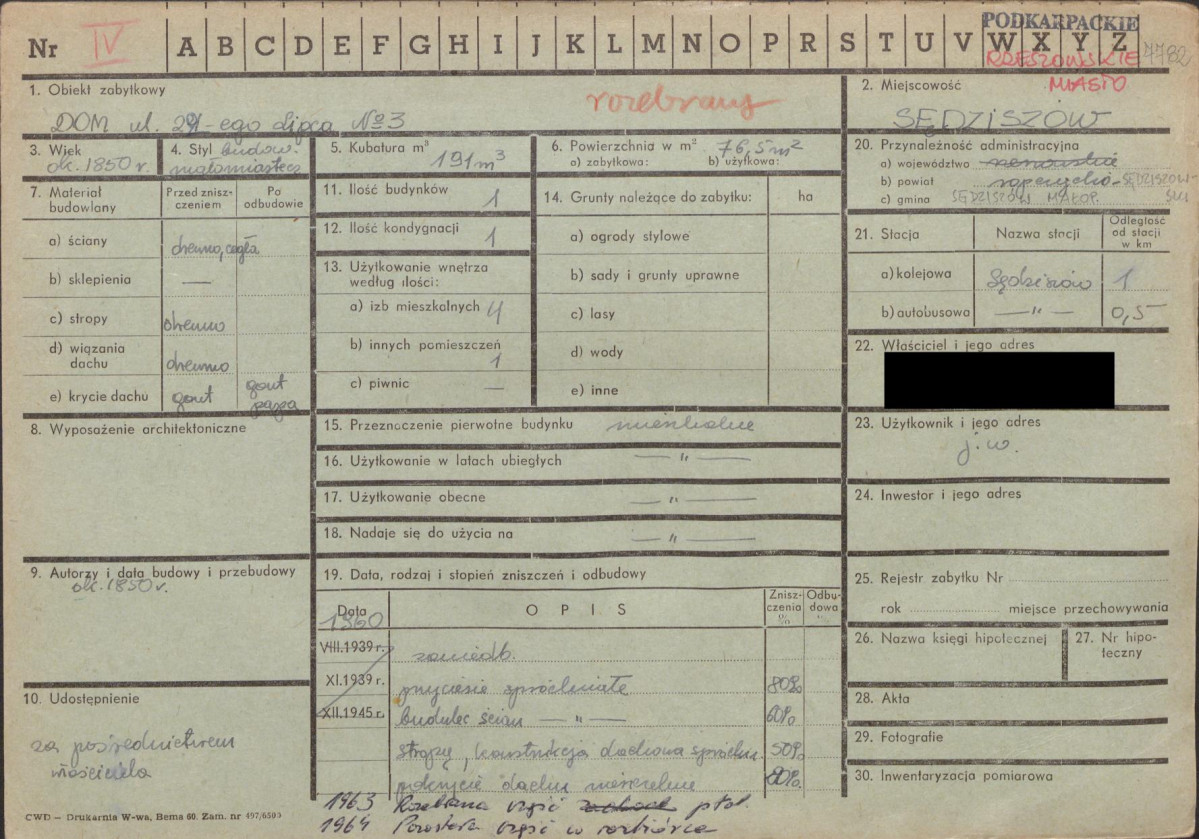 Nr IV A B C D E F G H I J K L M N O P R S T U V W X Y Z 7782
PODKARPACKIE
RZESZOWSKIE
MIASTO
1. Obiekt zabytkowy
rozebrany
DOM ul. 22-ego Lipca № 3
2. Miejscowość
SĘDZISZÓW
3. Wiek
ok. 1850 r.
4. Styl budow.
małomiastecz
5. Kubatura m³
191 m³
6. Powierzchnia w m² 76,5 m²
a) zabytkowa: b) użytkowa:
7. Materiał budowlany
Przed zniszczeniem
Po odbudowie
a) ściany drewno, cegła
b) sklepienia —
c) stropy drewno
d) wiązania dachu drewno
e) krycie dachu gont gont papa
8. Wyposażenie architektoniczne
9. Autorzy i data budowy i przebudowy
ok. 1850 r.
10. Udostępnienie
za pośrednictwem
właściciela
11. Ilość budynków 1
12. Ilość kondygnacji 1
13. Użytkowanie wnętrza
według ilości:
a) izb mieszkalnych 4
b) innych pomieszczeń 1
c) piwnic —
14. Grunty należące do zabytku: ha
a) ogrody stylowe
b) sady i grunty uprawne
c) lasy
d) wody
e) inne
15. Przeznaczenie pierwotne budynku mieszkalne
16. Użytkowanie w latach ubiegłych — " —
17. Użytkowanie obecne — " —
18. Nadaje się do użycia na — " —
19. Data, rodzaj i stopień zniszczeń i odbudowy
Data OPIS Zniszczenia % Odbudowa %
1960
VIII.1939 r. zaniedb.
XI.1939 r. przyciesie spróchniałe 80%
XII.1945 r. budulec ścian — " — 60%
stropy, konstrukcja dachowa spróchn. 50%
pokrycie dachu nieszczelne 80%
1963 Rozebrana część zachod. płd.
1964 Pozostała część w rozbiórce
20. Przynależność administracyjna
a) województwo rzeszowskie
b) powiat ropczycko-SĘDZISZOWSKI
c) gmina SĘDZISZÓW MAŁOP.
21. Stacja Nazwa stacji Odległość od stacji w km
a) kolejowa Sędziszów 1
b) autobusowa — " — 0,5
22. Właściciel i jego adres
23. Użytkownik i jego adres
j.w.
24. Inwestor i jego adres
25. Rejestr zabytku Nr
rok miejsce przechowywania
26. Nazwa księgi hipotecznej
27. Nr hipoteczny
28. Akta
29. Fotografie
30. Inwentaryzacja pomiarowa
CWD — Drukarnia W-wa, Bema 60. Zam. nr 497/6503